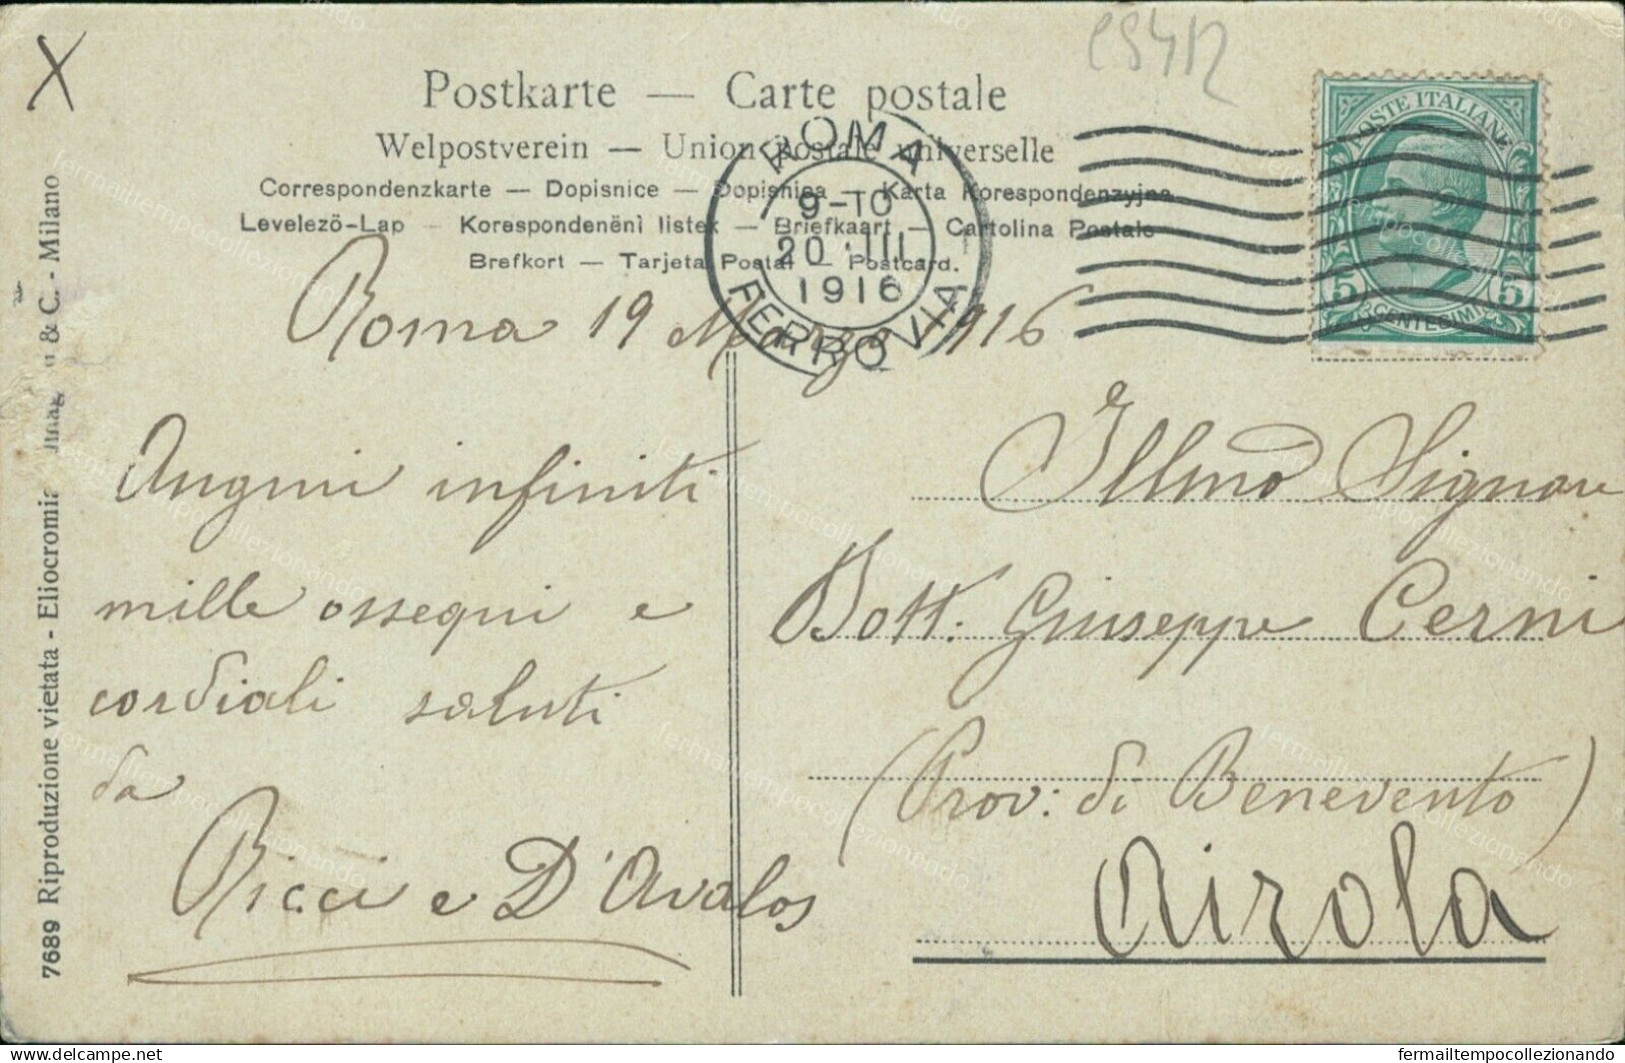 X
cs412
Postkarte — Carte postale
Welpostverein — Union postale universelle
Correspondenzkarte — Dopisnice — Dopisnica — Karta Korespondenzyjna
Levelezö-Lap — Korespondenčni listek — Briefkaart — Cartolina Postale
Brefkort — Tarjeta Postal — Postcard.
ROMA
9-10
20 · III
1916
FERROVIA
POSTE ITALIANE
5 CENTESIMI 5
Roma 19 Marzo 1916
Auguri infiniti
mille ossequi e
cordiali saluti
da
Ricci e D'Avalos
Illmo Signore
Dott. Giuseppe Cerni
(Prov: di Benevento)
Airola
7689 Riproduzione vietata - Eliocromia & C. - Milano
www.delcampe.net
fermailtempocollezionando